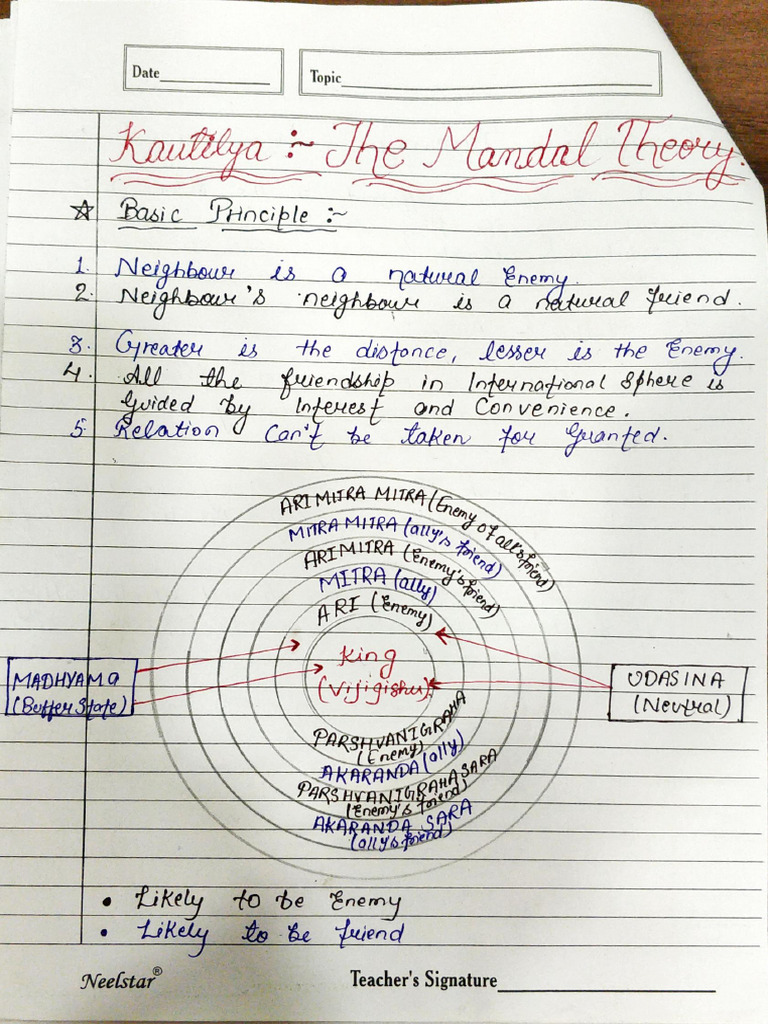 Date
Topic
Kautilya :- The Mandal Theory.
☆ Basic Principle :-
1. Neighbour is a natural Enemy.
2. Neighbour's neighbour is a natural friend.
3. Greater is the distance, lesser is the Enemy.
4. All the friendship in International sphere is
Guided by Interest and Convenience.
5. Relation can't be taken for Granted.
ARI MITRA MITRA (Enemy of all's friend)
MITRA MITRA (ally's friend)
ARIMITRA (Enemy's friend)
MITRA (ally)
ARI (Enemy)
King
(Vijigishu)
MADHYAMA
(Buffer State)
UDASINA
(Neutral)
PARSHVANIGRAHA
(Enemy)
AKARANDA (ally)
PARSHVANIGRAHA SARA
(Enemy's friend)
AKARANDA SARA
(ally's friend)
• Likely to be Enemy
• Likely to be friend
Neelstar®
Teacher's Signature